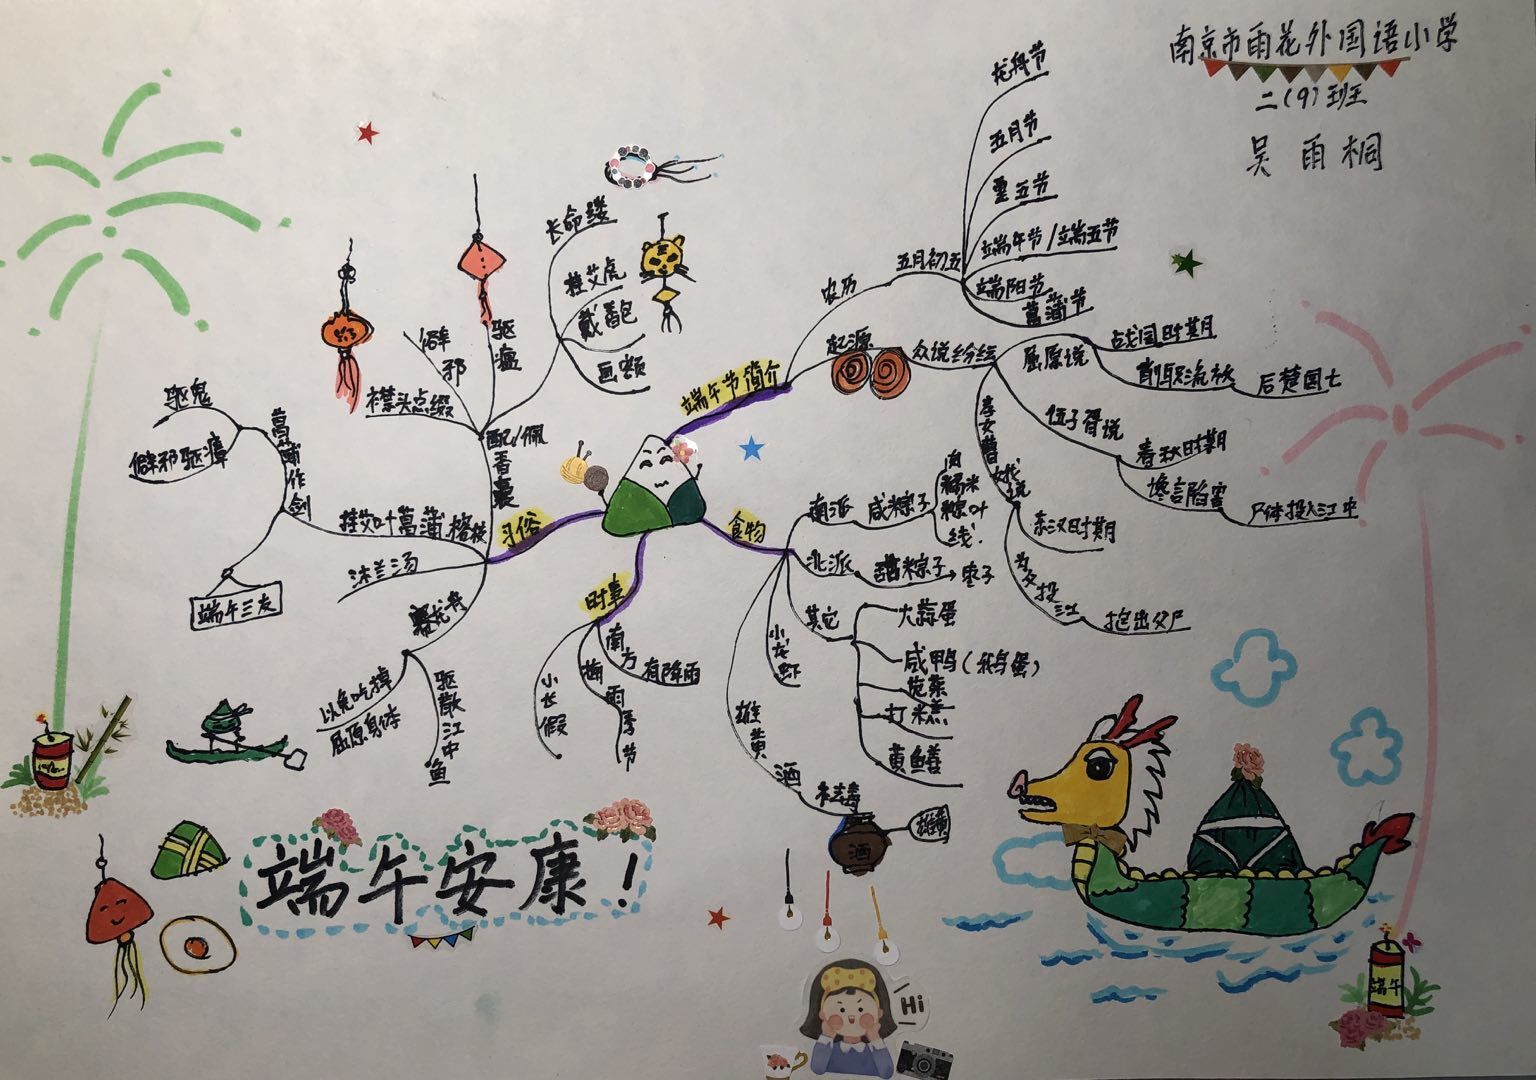 南京市雨花外国语小学
二(9)班
吴雨桐
端午节简介
农历
五月初五
龙舟节
五月节
重五节
端午节/端五节
端阳节
菖蒲节
起源
众说纷纭
屈原说
战国时期
流放
后楚国亡
伍子胥说
春秋时期
谗言陷害
尸体投入江中
孝女曹娥说
东汉时期
为父投江
抱出父尸
食物
南派
咸粽子
肉
糯米
粽叶
线
北派
甜粽子→枣子
其它
大蒜蛋
咸鸭(鹅蛋)
打糕
黄鳝
小龙虾
雄黄酒
酒
时事
南方有降雨
梅雨季节
小长假
习俗
配/佩香囊
长命缕
挂艾虎
戴香包
画额
驱瘟
僻邪
襟头点缀
挂艾叶菖蒲榕枝
菖蒲作剑
驱鬼
僻邪驱瘴
端午三友
沐兰汤
赛龙舟
以免吃掉
屈原身体
驱散江中鱼
端午安康!
Hi
端午